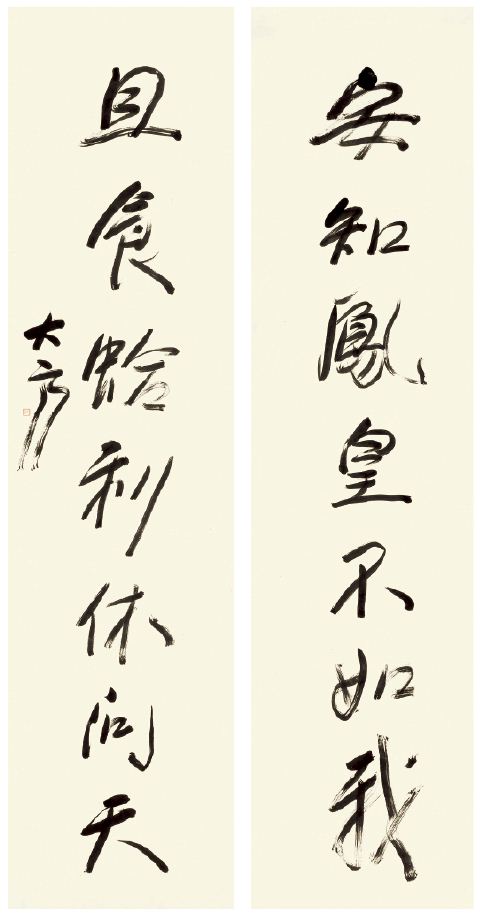 安知鳳皇不如我
且食蛤利休問天
大方